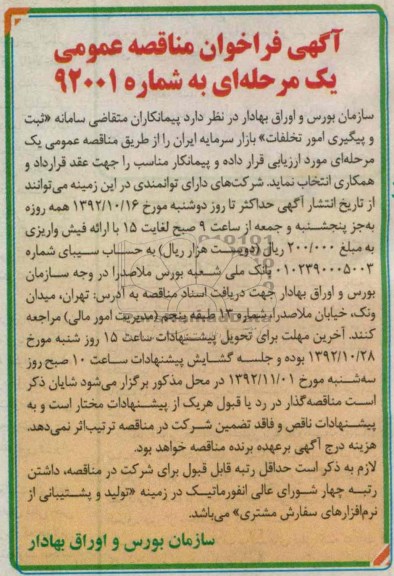 آگهی فراخوان مناقصه عمومی
یک مرحله‌ای به شماره ۹۲۰۰۱
سازمان بورس و اوراق بهادار در نظر دارد پیمانکاران متقاضی سامانه «ثبت
و پیگیری امور تخلفات» بازار سرمایه ایران را از طریق مناقصه عمومی یک
مرحله‌ای مورد ارزیابی قرار داده و پیمانکار مناسب را جهت عقد قرارداد و
همکاری انتخاب نماید. شرکت‌های دارای توانمندی در این زمینه می‌توانند
از تاریخ انتشار آگهی حداکثر تا روز دوشنبه مورخ ۱۳۹۲/۱۰/۱۶ همه روزه
به‌جز پنجشنبه و جمعه از ساعت ۹ صبح لغایت ۱۵ با ارائه فیش واریزی
به مبلغ ۲۰۰/۰۰۰ ریال (دویست هزار ریال) به حساب سیبای شماره
۰۱۰۲۳۹۰۰۰۵۰۰۳ بانک ملی شعبه بورس ملاصدرا در وجه سازمان
بورس و اوراق بهادار جهت دریافت اسناد مناقصه به آدرس: تهران، میدان
ونک، خیابان ملاصدرا، شماره ۱۳ طبقه پنجم (مدیریت امور مالی) مراجعه
کنند. آخرین مهلت برای تحویل پیشنهادات ساعت ۱۵ روز شنبه مورخ
۱۳۹۲/۱۰/۲۸ بوده و جلسه گشایش پیشنهادات ساعت ۱۰ صبح روز
سه‌شنبه مورخ ۱۳۹۲/۱۱/۰۱ در محل مذکور برگزار می‌شود شایان ذکر
است مناقصه‌گذار در رد یا قبول هریک از پیشنهادات مختار است و به
پیشنهادات ناقص و فاقد تضمین شرکت در مناقصه ترتیب‌اثر نمی‌دهد.
هزینه درج آگهی برعهده برنده مناقصه خواهد بود.
لازم به ذکر است حداقل رتبه قابل قبول برای شرکت در مناقصه، داشتن
رتبه چهار شورای عالی انفورماتیک در زمینه «تولید و پشتیبانی از
نرم‌افزارهای سفارش مشتری» می‌باشد.
سازمان بورس و اوراق بهادار